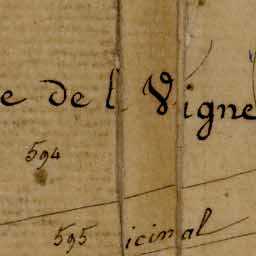 e de l Vigne
594
595 icinal